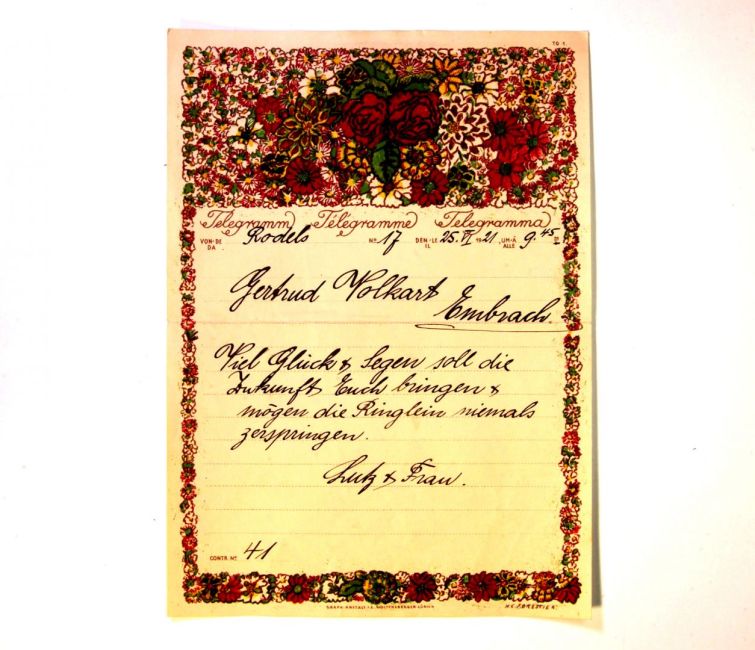 TG 1.
Telegramm Télégramme Telegramma
VON-DE DA Rodels No 17 DEN-LE IL 25. VI 1921 UM-À ALLE 9.45
Gertrud Volkart
Embrach.
Viel Glück & Segen soll die
Zukunft Euch bringen &
mögen die Ringlein niemals
zerspringen.
Lutz & Frau.
CONTR. No 41
GRAPH. ANSTALT J.E. WOLFENSBERGER ZÜRICH
H.C. FORESTIER